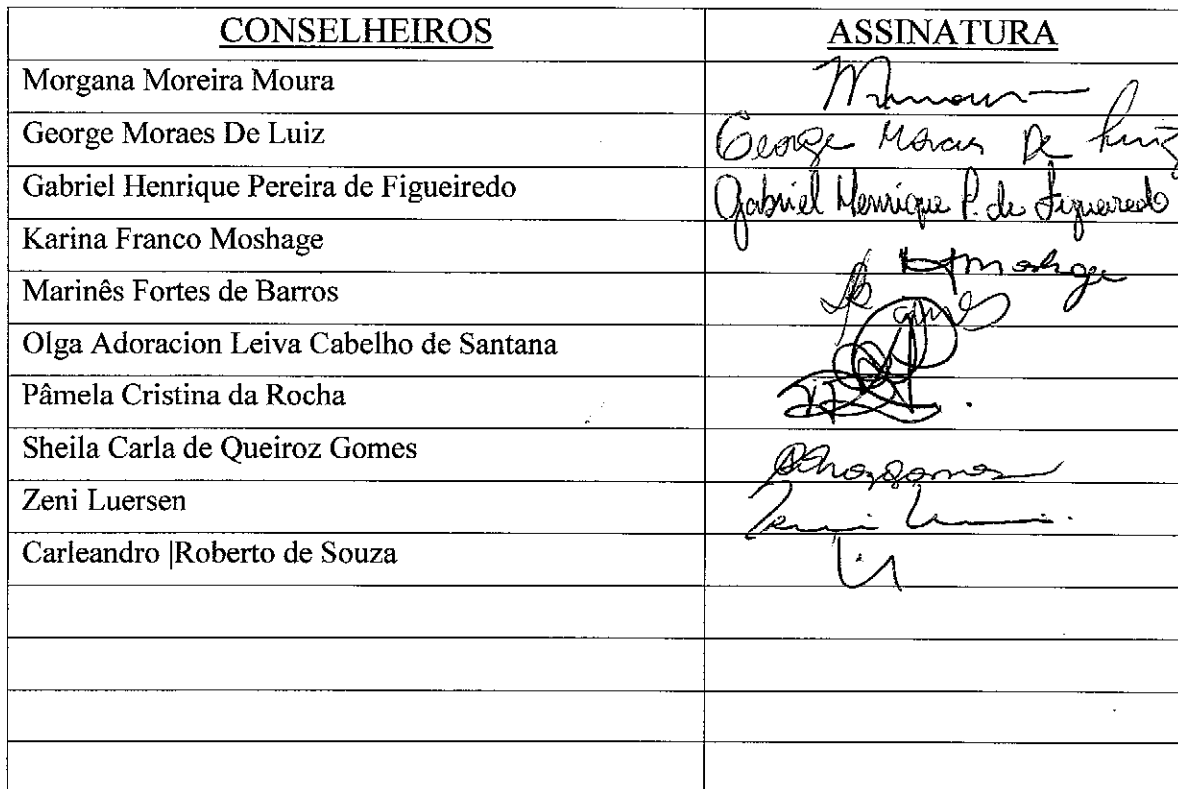 CONSELHEIROS ASSINATURA
Morgana Moreira Moura
George Moraes De Luiz George Moraes De Luiz
Gabriel Henrique Pereira de Figueiredo Gabriel Henrique P. de Figueiredo
Karina Franco Moshage Moshage
Marinês Fortes de Barros
Olga Adoracion Leiva Cabelho de Santana
Pâmela Cristina da Rocha
Sheila Carla de Queiroz Gomes
Zeni Luersen Zeni
Carleandro |Roberto de Souza